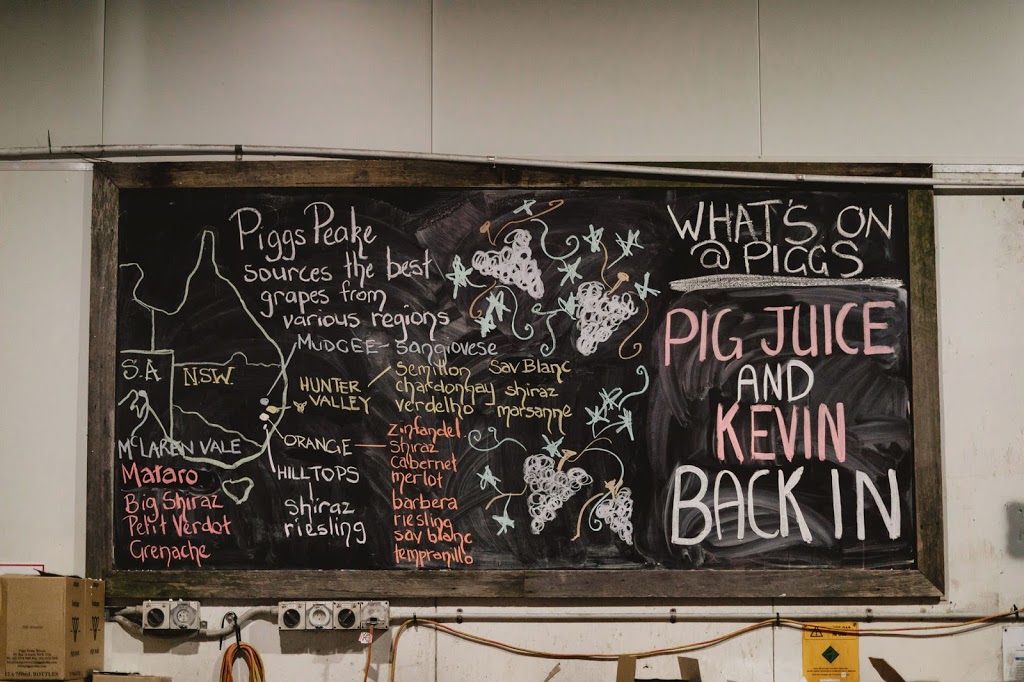 Piggs Peake
sources the best
grapes from
various regions
MUDGEE - sangiovese
S.A
NSW.
HUNTER
VALLEY
semillon Sav Blanc
chardonnay shiraz
verdelho marsanne
ORANGE
zinfandel
shiraz
cabernet
merlot
barbera
riesling
sav blanc
tempranillo
HILLTOPS
shiraz
riesling
McLAREN VALE
Mataro
Big Shiraz
Petit Verdot
Grenache
WHAT'S ON
@ PIGGS
PIG JUICE
AND
KEVIN
BACK IN